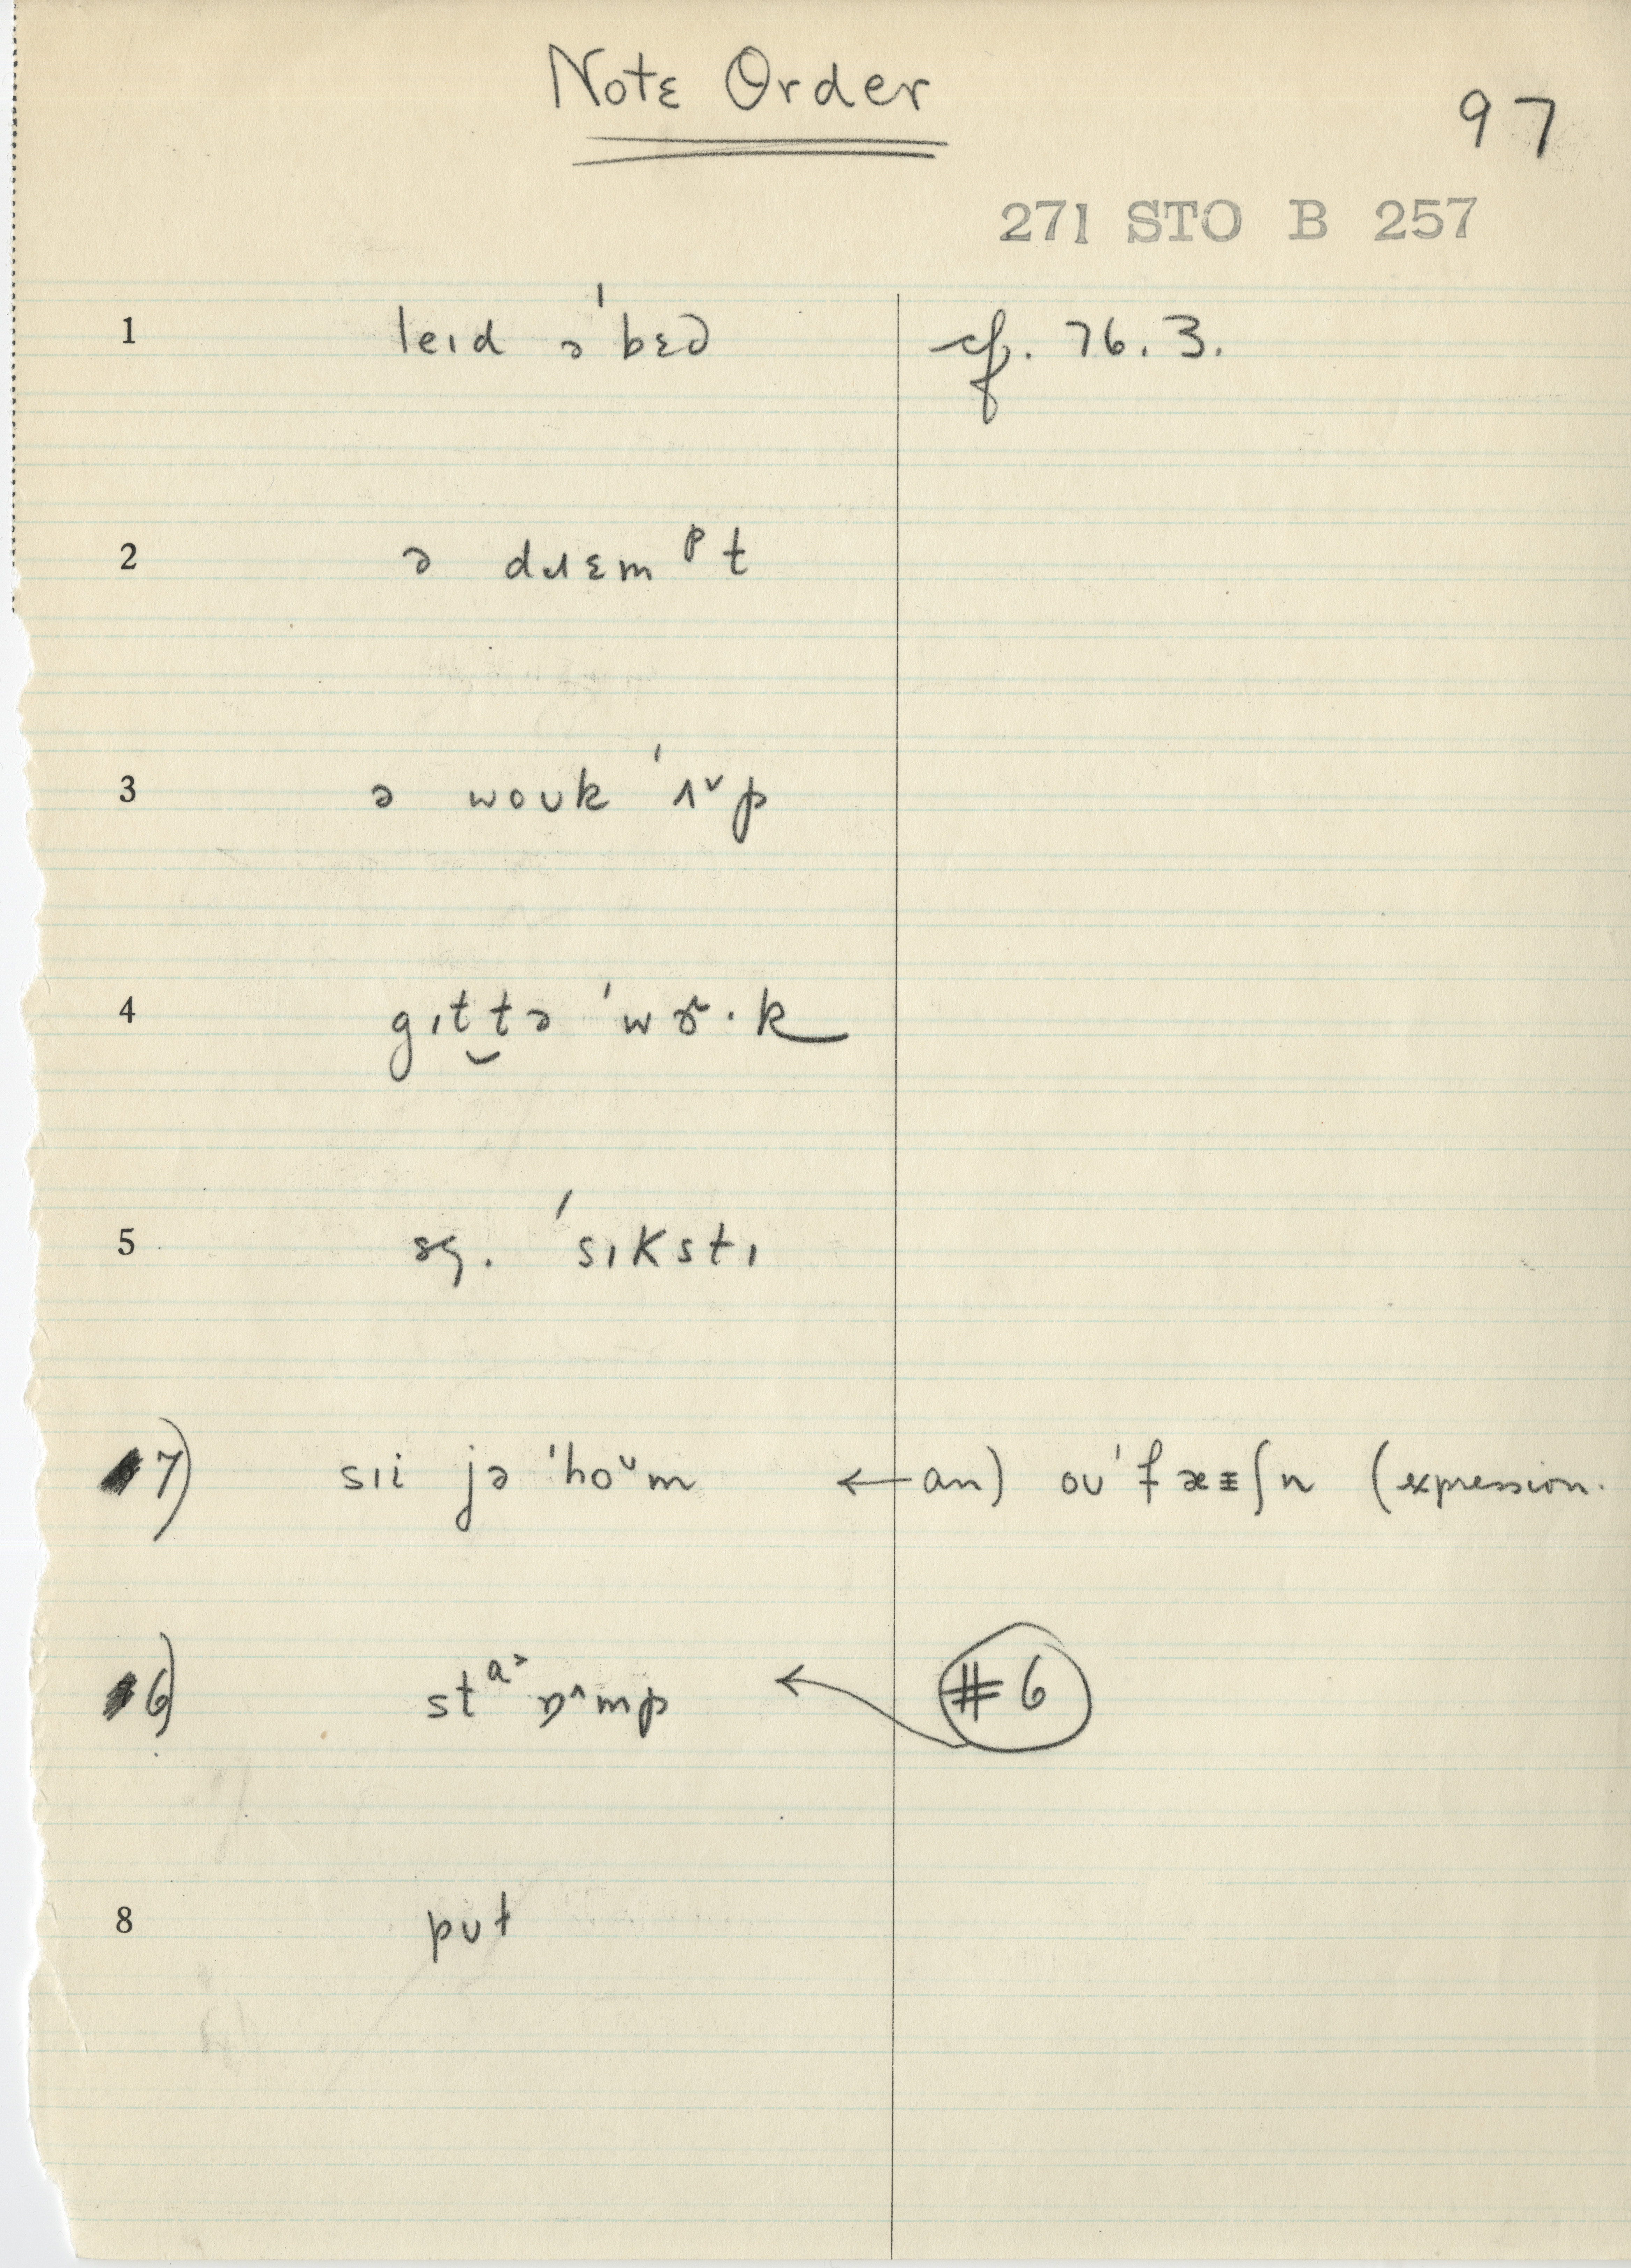 Note Order
97
271 STO B 257
1 leɪd ə ˈbɛd cf. 76.3.
2 ə dɹɛmᵖt
3 ə woʊk ˈʌ˅p
4 gɪt‿tə ˈwɝ·k
5 sg. ˈsɪkstɪ
7) sɪi jə ˈho˅m ← an) oʊˈfæɛʃn (expression.
6) ← #6
8 pʊt